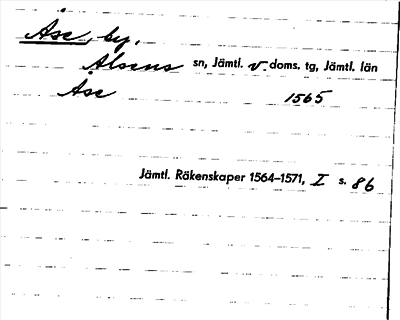 Åse, by,
Alsens sn, Jämtl. v doms. tg, Jämtl. län
Åse 1565
Jämtl. Räkenskaper 1564–1571, I s. 86